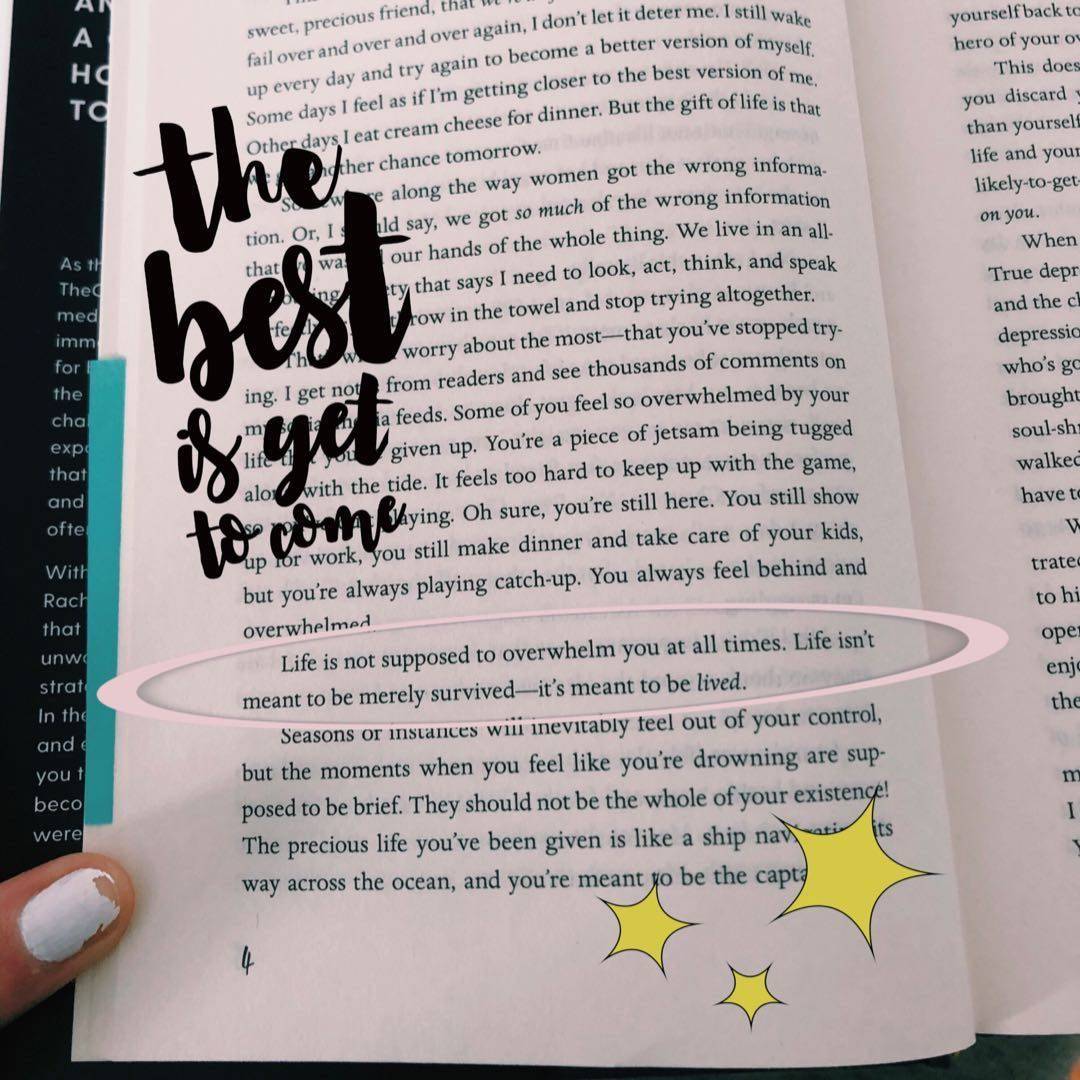 AN
A
HO
TO
As th
TheC
med
imm
for
the
cha
expe
that
and
ofte
With
Rach
that
unwo
strat
In the
and
you t
beco
were
the
best
is yet
to come
sweet, precious friend, that
fail over and over and over again, I don't let it deter me. I still wake
up every day and try again to become a better version of myself.
Some days I feel as if I'm getting closer to the best version of me.
Other days I eat cream cheese for dinner. But the gift of life is that
chance tomorrow.
along the way women got the wrong informa-
tion. Or, I say, we got so much of the wrong information
that our hands of the whole thing. We live in an all-
that says I need to look, act, think, and speak
throw in the towel and stop trying altogether.
worry about the most—that you've stopped try-
ing. I get from readers and see thousands of comments on
my feeds. Some of you feel so overwhelmed by your
life given up. You're a piece of jetsam being tugged
with the tide. It feels too hard to keep up with the game,
so Oh sure, you're still here. You still show
up for work, you still make dinner and take care of your kids,
but you're always playing catch-up. You always feel behind and
overwhelmed.
Life is not supposed to overwhelm you at all times. Life isn't
meant to be merely survived—it's meant to be lived.
Seasons or instances will inevitably feel out of your control,
but the moments when you feel like you're drowning are sup-
posed to be brief. They should not be the whole of your existence!
The precious life you've been given is like a ship its
way across the ocean, and you're meant to be the
4
yourself back to
hero of your ow
This does
you discard
than yourself
life and your
likely-to-get-
on you.
When
True depr
and the cl
depressio
who's go
brought
soul-shr
walked
have to
W
trated
to hi
oper
enjo
the
m
I